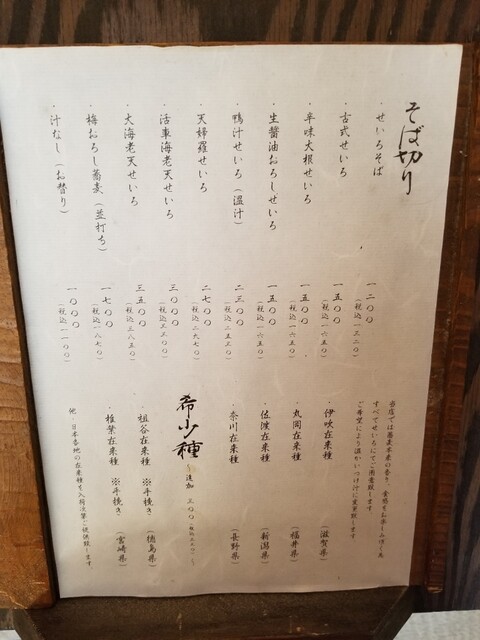 そば切り
・せいろそば 一二〇〇(税込一三二〇)
・古式せいろ 一五〇〇(税込一六五〇)
・辛味大根せいろ 一五〇〇(税込一六五〇)
・生醤油おろしせいろ 一五〇〇(税込一六五〇)
・鴨汁せいろ(温汁) 二三〇〇(税込二五三〇)
・天婦羅せいろ 二七〇〇(税込二九七〇)
・活車海老天せいろ 三〇〇〇(税込三三〇〇)
・大海老天せいろ 三五〇〇(税込三八五〇)
・梅おろし蕎麦(並打ち) 一七〇〇(税込一八七〇)
・汁なし(お替り) 一〇〇〇(税込一一〇〇)
当店では蕎麦本来の香り、食感をお楽しみ頂く為
すべてせいろにてご用意致します
ご希望により温かいつけ汁に変更致します
・伊吹在来種(滋賀県)
・丸岡在来種(福井県)
・佐渡在来種(新潟県)
・奈川在来種(長野県)
希少種 追加 三〇〇(税込三三〇)
・祖谷在来種 ※手挽き(徳島県)
・椎葉在来種 ※手挽き(宮崎県)
他、日本各地の在来種を入荷次第ご提供致します